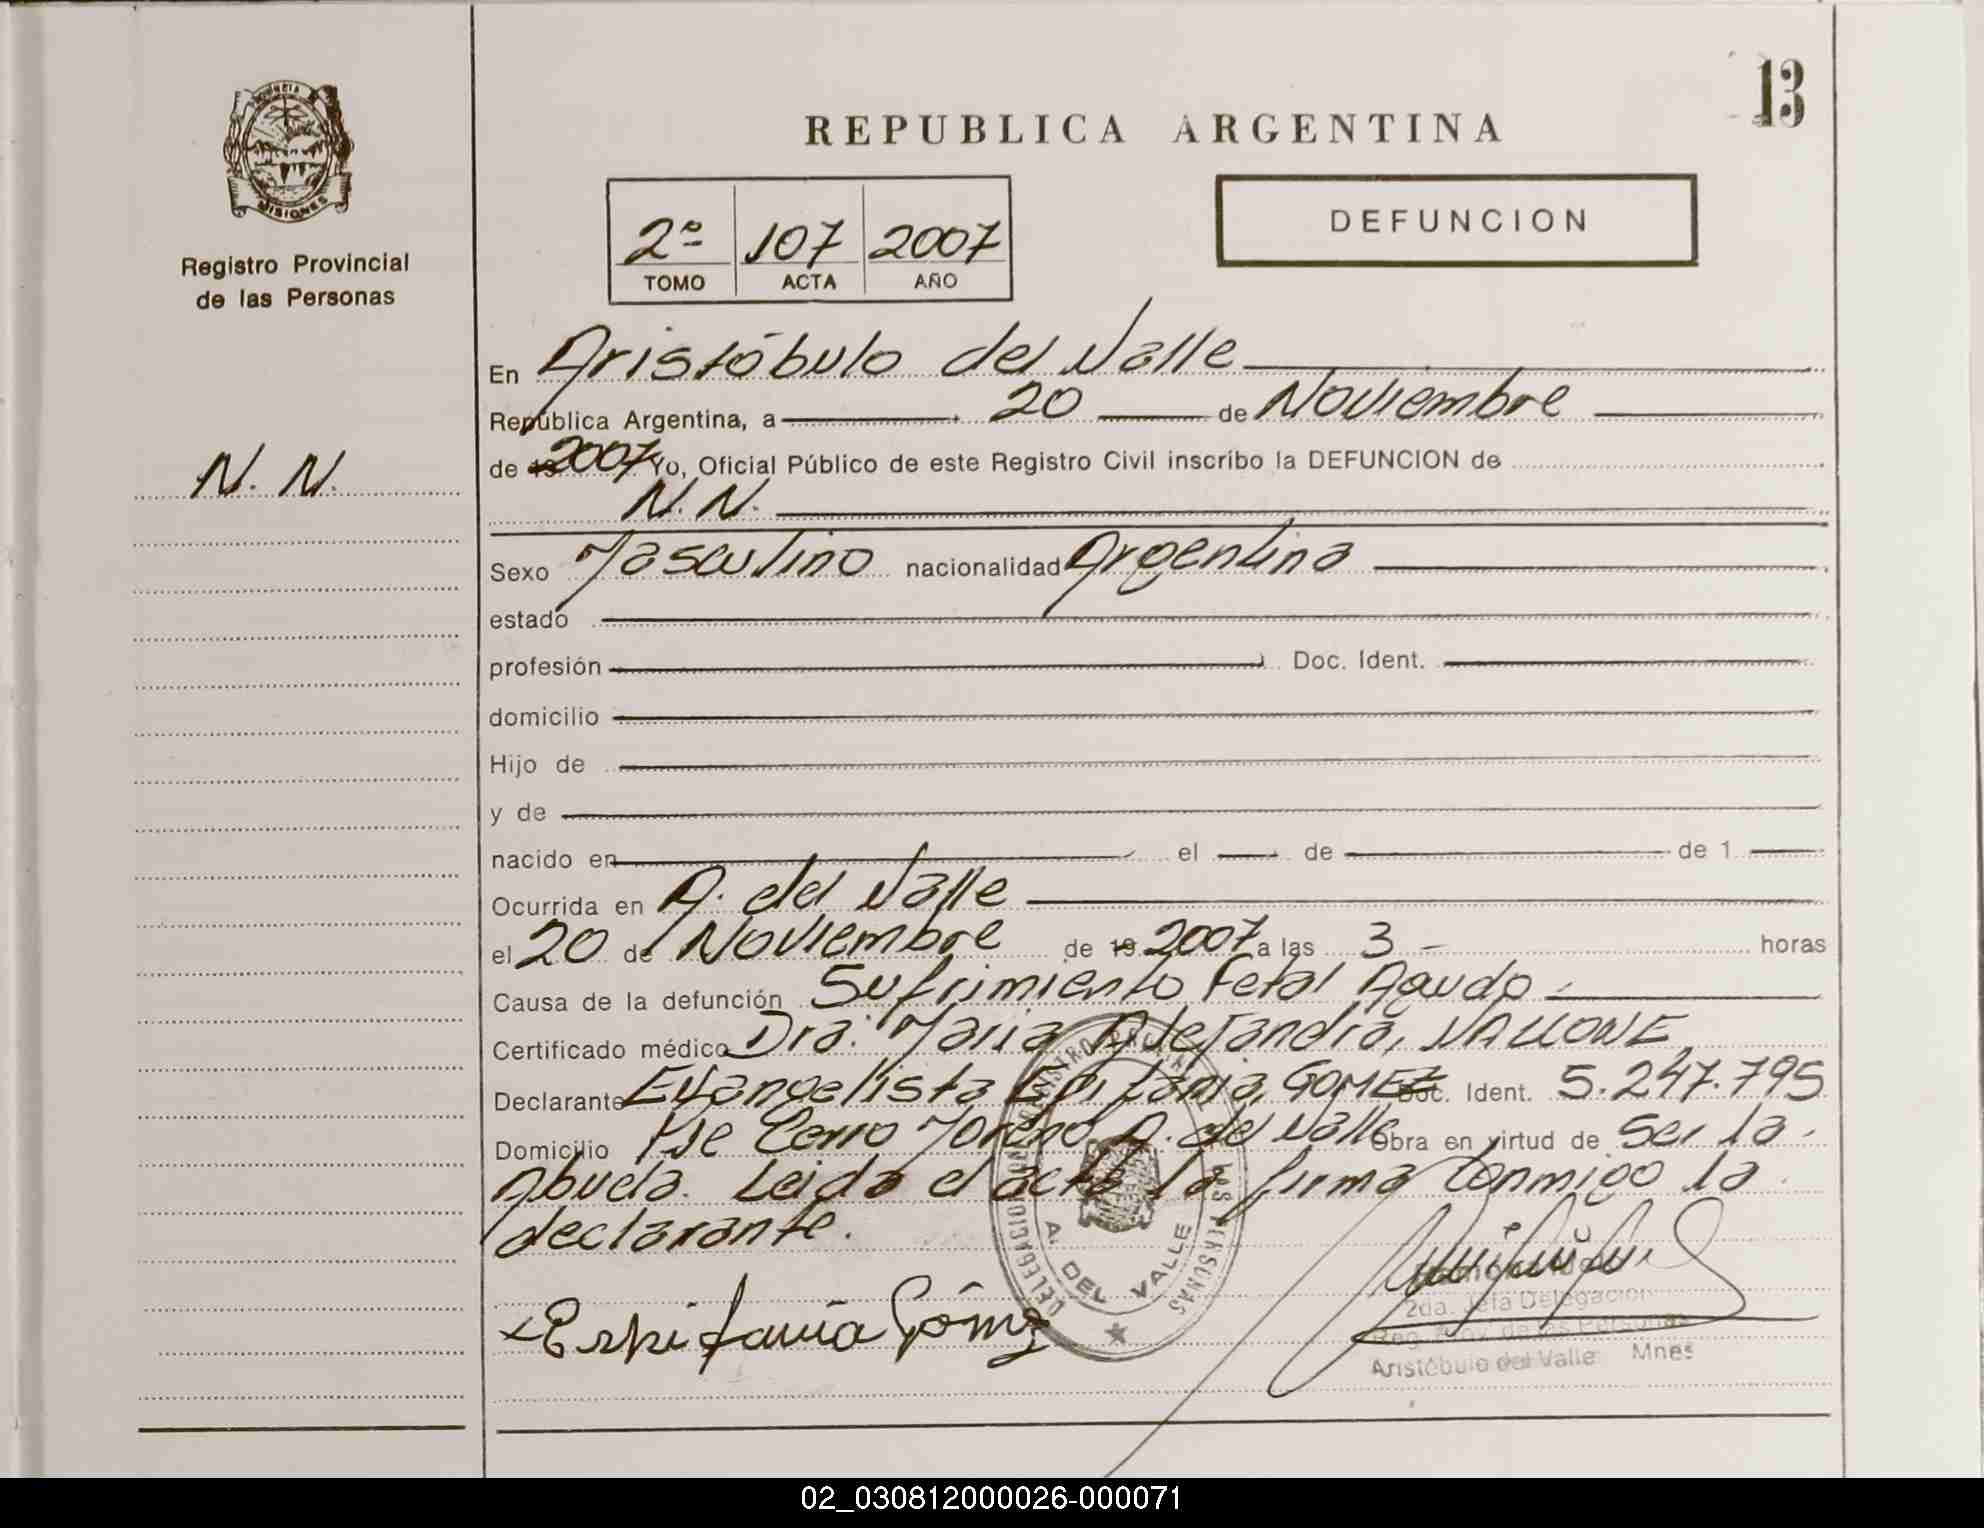 13
PROVINCIA
MISIONES
Registro Provincial
de las Personas
REPUBLICA ARGENTINA
DEFUNCION
2º 107 2007
TOMO ACTA AÑO
En Aristóbulo del Valle
República Argentina, a 20 de Noviembre
N. N.
de 19 2007 Yo, Oficial Público de este Registro Civil inscribo la DEFUNCION de
N. N.
Sexo Masculino nacionalidad Argentina
estado
profesión Doc. Ident.
domicilio
Hijo de
y de
nacido en el de de 1
Ocurrida en A. del Valle
el 20 de Noviembre de 19 2007 a las 3 - horas
Causa de la defunción Sufrimiento Fetal Agudo
Certificado médico Dra. Maria Alejandra, VALLONE
Declarante Evangelista Epifania, GOMEZ Doc. Ident. 5.247.795
Domicilio Pje Cerro Moreno A. del Valle Obra en virtud de Ser la
Abuela. Leida el acta la firma Conmigo la
declarante.
DELEGACION REGISTRO DE LAS PERSONAS
A. DEL VALLE
Epifania Gómez
2da. Jefa Delegacion
Reg. Prov. de las Personas
Aristóbulo del Valle Mnes
02_030812000026-000071